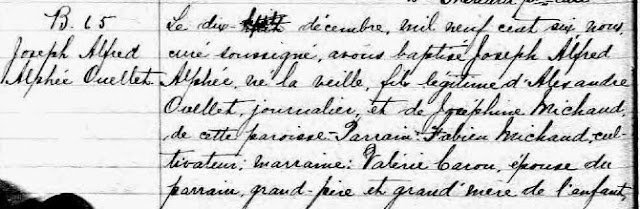 B. 65
Joseph Alfred
Alphée Ouellet
Le dix- décembre, mil neuf cent six, nous
curé soussigné, avons baptisé Joseph Alfred
Alphée, né la veille, fils légitime d'Alexandre
Ouellet, journalier, et de Joséphine Michaud,
de cette paroisse. Parrain: Fabien Michaud, cul-
tivateur; marraine: Valérie Caron, épouse du
parrain, grand-père et grand'mère de l'enfant,